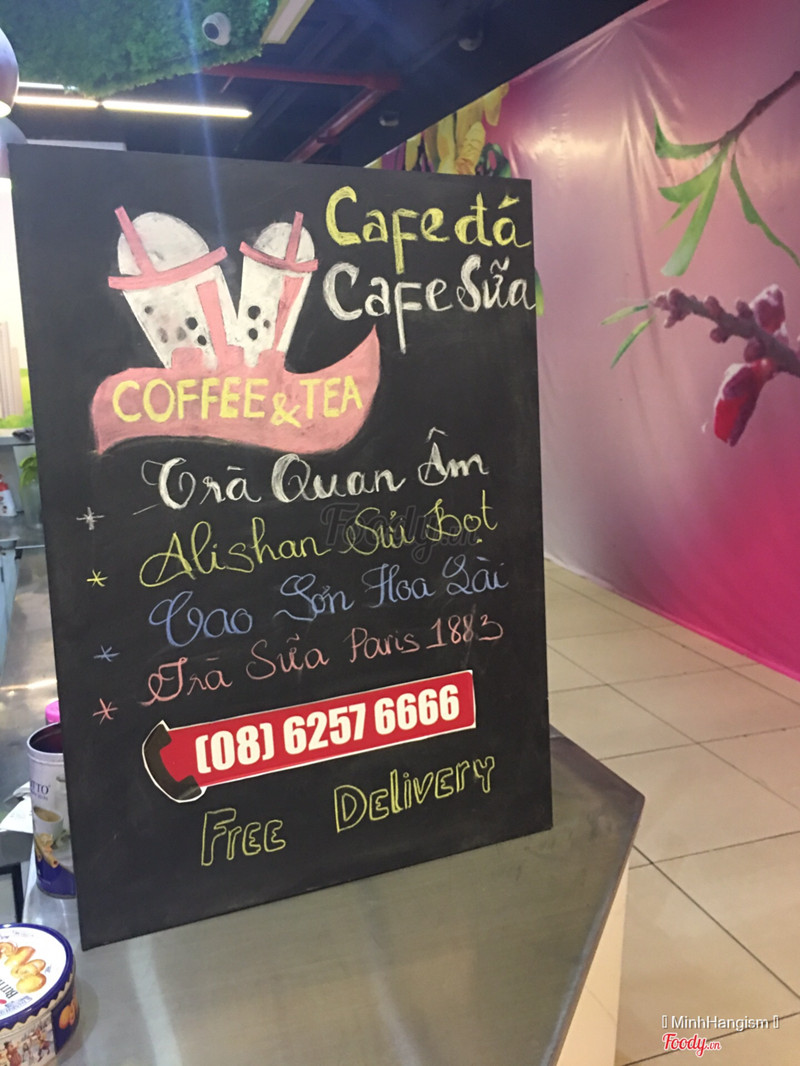 Cafe đá
Cafe Sữa
COFFEE & TEA
* Trà Quan Âm
* Alishan Sủi Bọt
* Cao Sơn Hoa Lài
* Trà Sữa Paris 1883
(08) 6257 6666
Free Delivery
Foody.vn
MinhHangism
Foody.vn